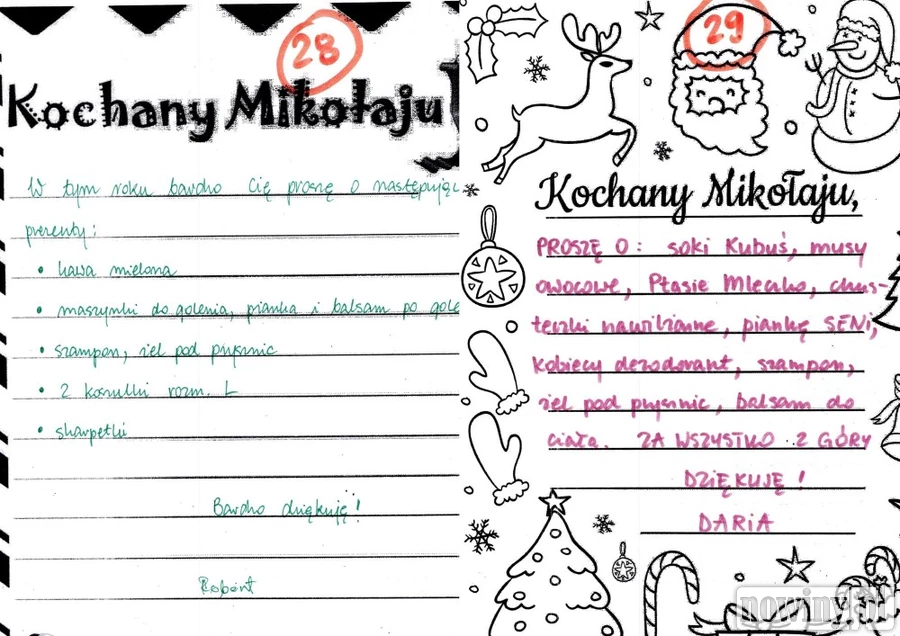 28
Kochany Mikołaju
W tym roku bardzo Cię proszę o
prezenty:
• kawa mielona
• maszynki do golenia, pianka i balsam po gole
• szampon, żel pod prysznic
• 2 koszulki rozm. L
• skarpetki
Bardzo dziękuję!
Robert
29
Kochany Mikołaju,
PROSZĘ O: soki Kubuś, musy
owocowe, Ptasie Mleczko, chus-
teczki nawilżane, piankę SENi,
kobiecy dezodorant, szampon,
żel pod prysznic, balsam do
ciała. ZA WSZYSTKO Z GÓRY
DZIĘKUJĘ!
DARIA
nowiny.pl